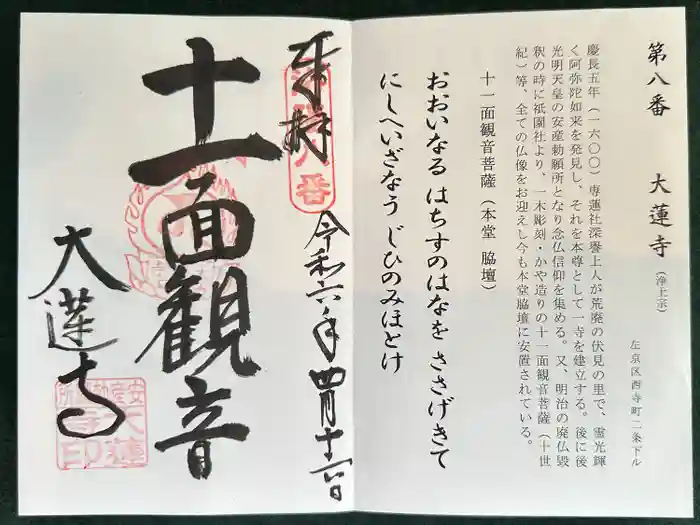 第八番 大蓮寺 (浄土宗)
左京区西寺町二条下ル
慶長五年(一六〇〇)専蓮社深誉上人が荒廃の伏見の里で、霊光輝
く阿弥陀如来を発見し、それを本尊として一寺を建立する。後に後
光明天皇の安産勅願所となり念仏信仰を集める。又、明治の廃仏毀
釈の時に祇園社より、一木彫刻・かや造りの十一面観音菩薩(十世
紀)等、全ての仏像をお迎えし今も本堂脇壇に安置されている。
十一面観音菩薩(本堂 脇壇)
おおいなる はちすのはなを ささげきて
にしへいざなう じひのみほとけ
奉拝
令和六年四月十一日
十一面観音
大蓮寺
安産勅願所
大蓮寺印